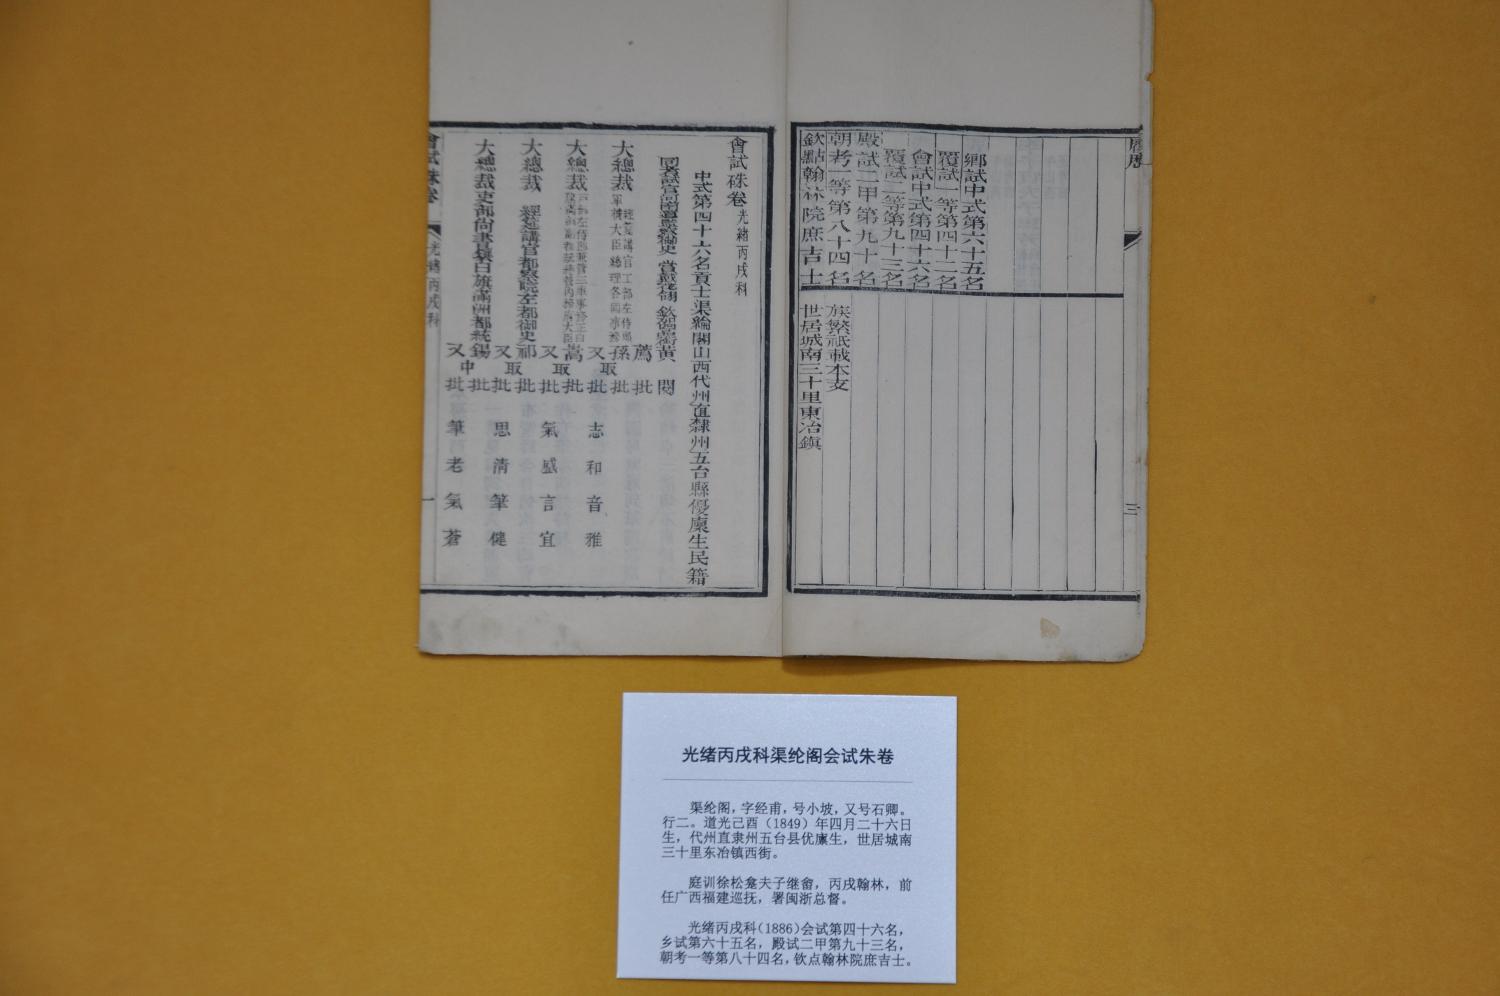 履歷
鄉試中式第六十五名
覆試一等第四十二名
會試中式第四十六名
覆試二等第九十三名
殿試二甲第九十名
朝考一等第八十四名
欽點翰林院庶吉士
族繁祇載本支
世居城南三十里東冶鎮
三
會試硃卷 光緒丙戌科
中式第四十六名貢士渠綸閣山西代州直隸州五台縣優廩生民籍
黃 閱
薦 批
大總裁 經筵講官工部左侍郎軍機大臣總理各國事務 孫 取 批
又 批 志和音雅
大總裁 嵩 取 批
又 批 氣盛言宜
大總裁 經筵講官都察院左都御史 祁 取 批
又 批 思清筆健
大總裁吏部尚書鑲白旗滿洲都統 錫 中 批
又 批 筆老氣蒼
會試硃卷 光緒丙戌科 一
光绪丙戌科渠纶阁会试朱卷
渠纶阁，字经甫，号小坡，又号石卿。
行二。道光己酉（1849）年四月二十六日
生，代州直隶州五台县优廪生，世居城南
三十里东冶镇西街。
庭训徐松龛夫子继畬，丙戌翰林，前
任广西福建巡抚，署闽浙总督。
光绪丙戌科(1886)会试第四十六名，
乡试第六十五名，殿试二甲第九十三名，
朝考一等第八十四名，钦点翰林院庶吉士。